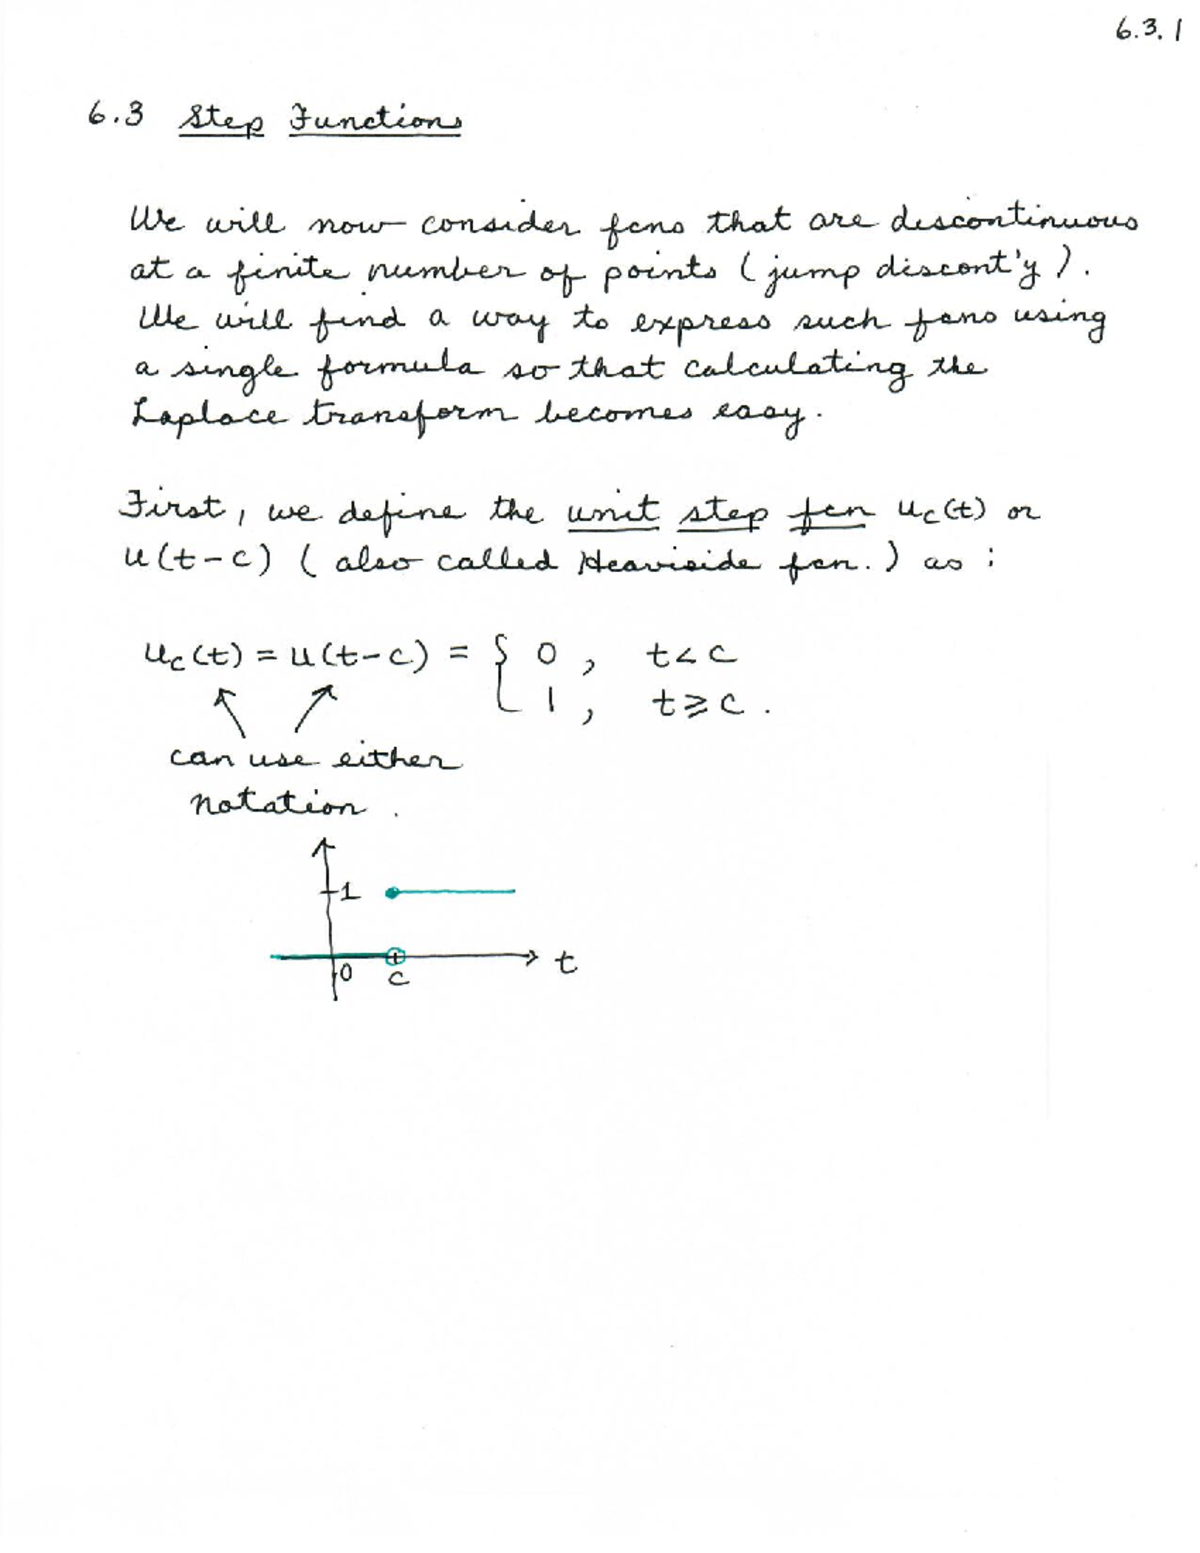 6.3.1
6.3 Step Functions
We will now consider fcns that are discontinuous
at a finite number of points (jump discont'y).
We will find a way to express such fcns using
a single formula so that calculating the
Laplace transform becomes easy.
First, we define the unit step fcn u_c(t) or
u(t-c) (also called Heaviside fcn.) as:
u_c(t) = u(t-c) = { 0, t<c
1, t≥c.
can use either
notation.
1
0 c t